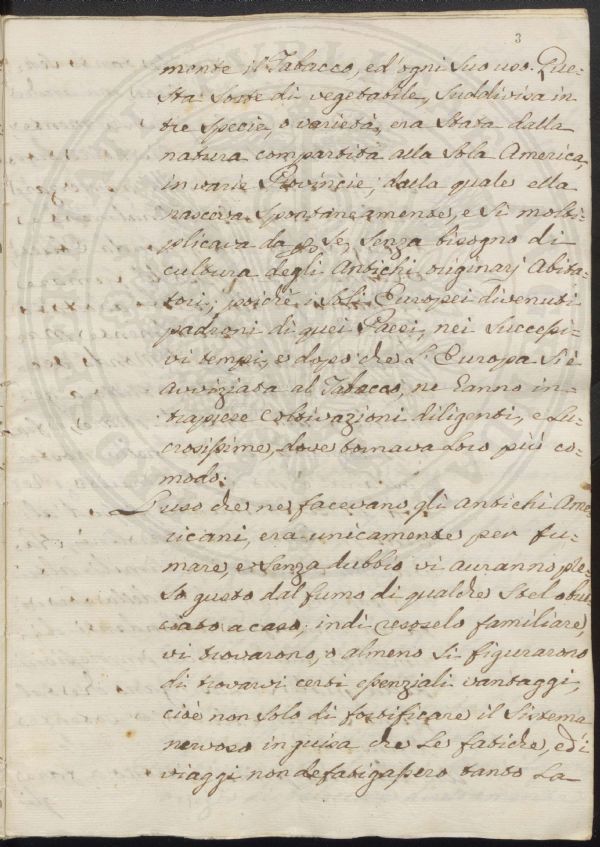 3
mente il Tabacco, ed'ogni suo uso. Que-
sta sorte di vegetabile, suddivisa in
tre specie, o varietà, era stata dalla
natura compartita alla sola America,
in varie Provincie; dalla quale ella
nasceva spontaneamente, e si molti-
plicava da per se, senza bisogno di
cultura degli Antichi originarj Abita-
tori; poichè i soli Europei divenuti
padroni di quei Paesi, nei successi-
vi tempi, e dopo che l'Europa si è
avviziata al Tabacco, ne hanno in-
traprese coltivazioni diligenti, e lu-
crosissime, dove tornava loro più co-
modo.
L'uso che ne facevano gli antichi Ame-
ricani, era unicamente per fu-
mare, e senza dubbio vi auranno pre-
so gusto dal fumo di qualche stelo bru-
ciato a caso; indi resoselo familiare,
vi trovarono, o almeno si figurarono
di trovarvi certi essenziali vantaggi,
cioè non solo di fortificare il sistema
nervoso in guisa che le fatiche, ed i
viaggi non defatigassero tanto la